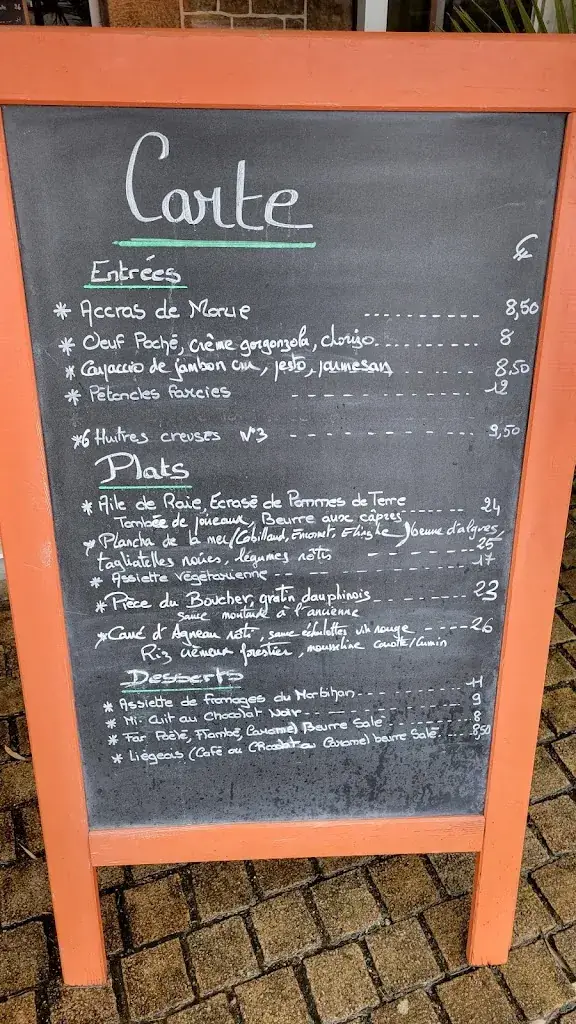 Carte
€
Entrées
* Accras de Morue ---------- 8,50
* Oeuf Poché, crème gorgonzola, chorizo ---------- 8
* Carpaccio de jambon cru, pesto, parmesan ---------- 8.50
* Pétoncles farcies ---------- 12
*6 Huîtres creuses N°3 ---------- 9,50
Plats
* Aile de Raie, Ecrasé de Pommes de Terre ---------- 24
Tombée de poireaux, Beurre aux câpres
* Plancha de la mer (Cabillaud, Emonet, Elingue) beurre d'algues
tagliatelles noires, légumes rôtis ---------- 25
* Assiette végétarienne ---------- 17
* Pièce du Boucher, gratin dauphinois ---------- 23
sauce moutarde à l'ancienne
* Carré d'Agneau rôti, sauce échalottes vin rouge ---------- 26
Riz crémeux forestier, mousseline carotte/cumin
Desserts
* Assiette de fromages du Morbihan ---------- 11
* Mi-Cuit au Chocolat Noir ---------- 9
* Far Poêlé, Flambé, Caramel Beurre Salé ---------- 8
* Liégeois (Café ou Chocolat ou Caramel beurre Salé ---------- 8,50